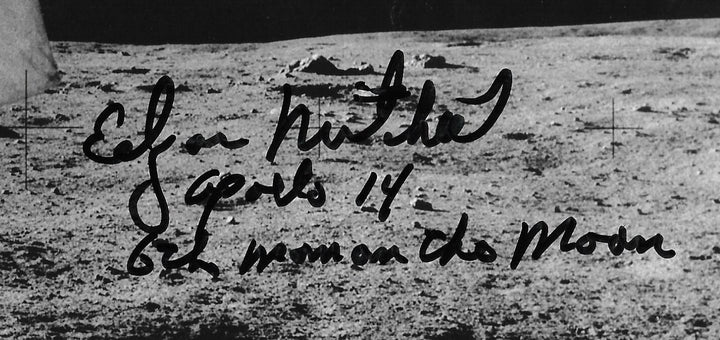 Edgar Mitchell
Apollo 14
6th man on the Moon